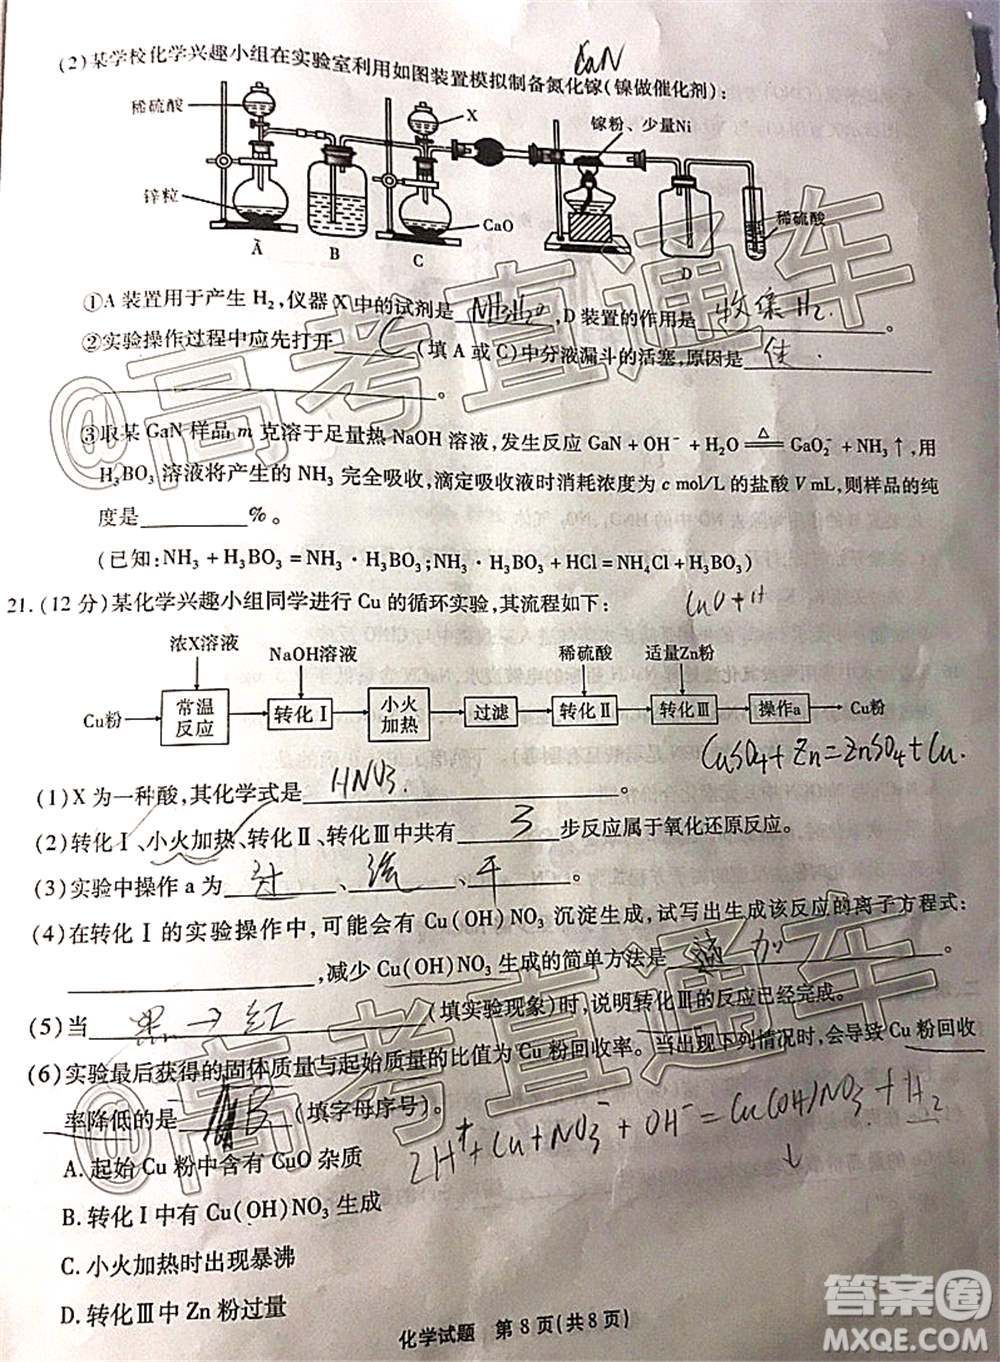 (2)某学校化学兴趣小组在实验室利用如图装置模拟制备氮化镓(镍做催化剂):
GaN
稀硫酸
X
镓粉、少量Ni
锌粒
CaO
稀硫酸
A
B
C
D
①A装置用于产生H₂,仪器X中的试剂是 NH₃H₂O ,D装置的作用是 收集H₂ 。
②实验操作过程中应先打开 C (填A或C)中分液漏斗的活塞,原因是 使
。
③取某GaN样品m克溶于足量热NaOH溶液,发生反应GaN+OH⁻+H₂O≜GaO₂⁻+NH₃↑,用
H₃BO₃溶液将产生的NH₃完全吸收,滴定吸收液时消耗浓度为c mol/L的盐酸V mL,则样品的纯
度是________%。
(已知:NH₃+H₃BO₃=NH₃·H₃BO₃;NH₃·H₃BO₃+HCl=NH₄Cl+H₃BO₃)
21.(12分)某化学兴趣小组同学进行Cu的循环实验,其流程如下:
CuO+H
浓X溶液
NaOH溶液
稀硫酸
适量Zn粉
Cu粉
常温反应
转化Ⅰ
小火加热
过滤
转化Ⅱ
转化Ⅲ
操作a
Cu粉
CuSO₄+Zn=ZnSO₄+Cu.
(1)X为一种酸,其化学式是 HNO₃. 。
(2)转化Ⅰ、小火加热、转化Ⅱ、转化Ⅲ中共有 3 步反应属于氧化还原反应。
(3)实验中操作a为 过 、 洗 、 干 。
(4)在转化Ⅰ的实验操作中,可能会有Cu(OH)NO₃沉淀生成,试写出生成该反应的离子方程式:
________,减少Cu(OH)NO₃生成的简单方法是 加 。
(5)当 黑→红 (填实验现象)时,说明转化Ⅲ的反应已经完成。
(6)实验最后获得的固体质量与起始质量的比值为Cu粉回收率。当出现下列情况时,会导致Cu粉回收
率降低的是 B (填字母序号)。
2H⁺+Cu+NO₃⁻+OH⁻=Cu(OH)NO₃+H₂
↓
A.起始Cu粉中含有CuO杂质
B.转化Ⅰ中有Cu(OH)NO₃生成
C.小火加热时出现暴沸
D.转化Ⅲ中Zn粉过量
化学试题 第8页(共8页)
@高考直通车
@高考直通车
答案圈
MXQE.COM